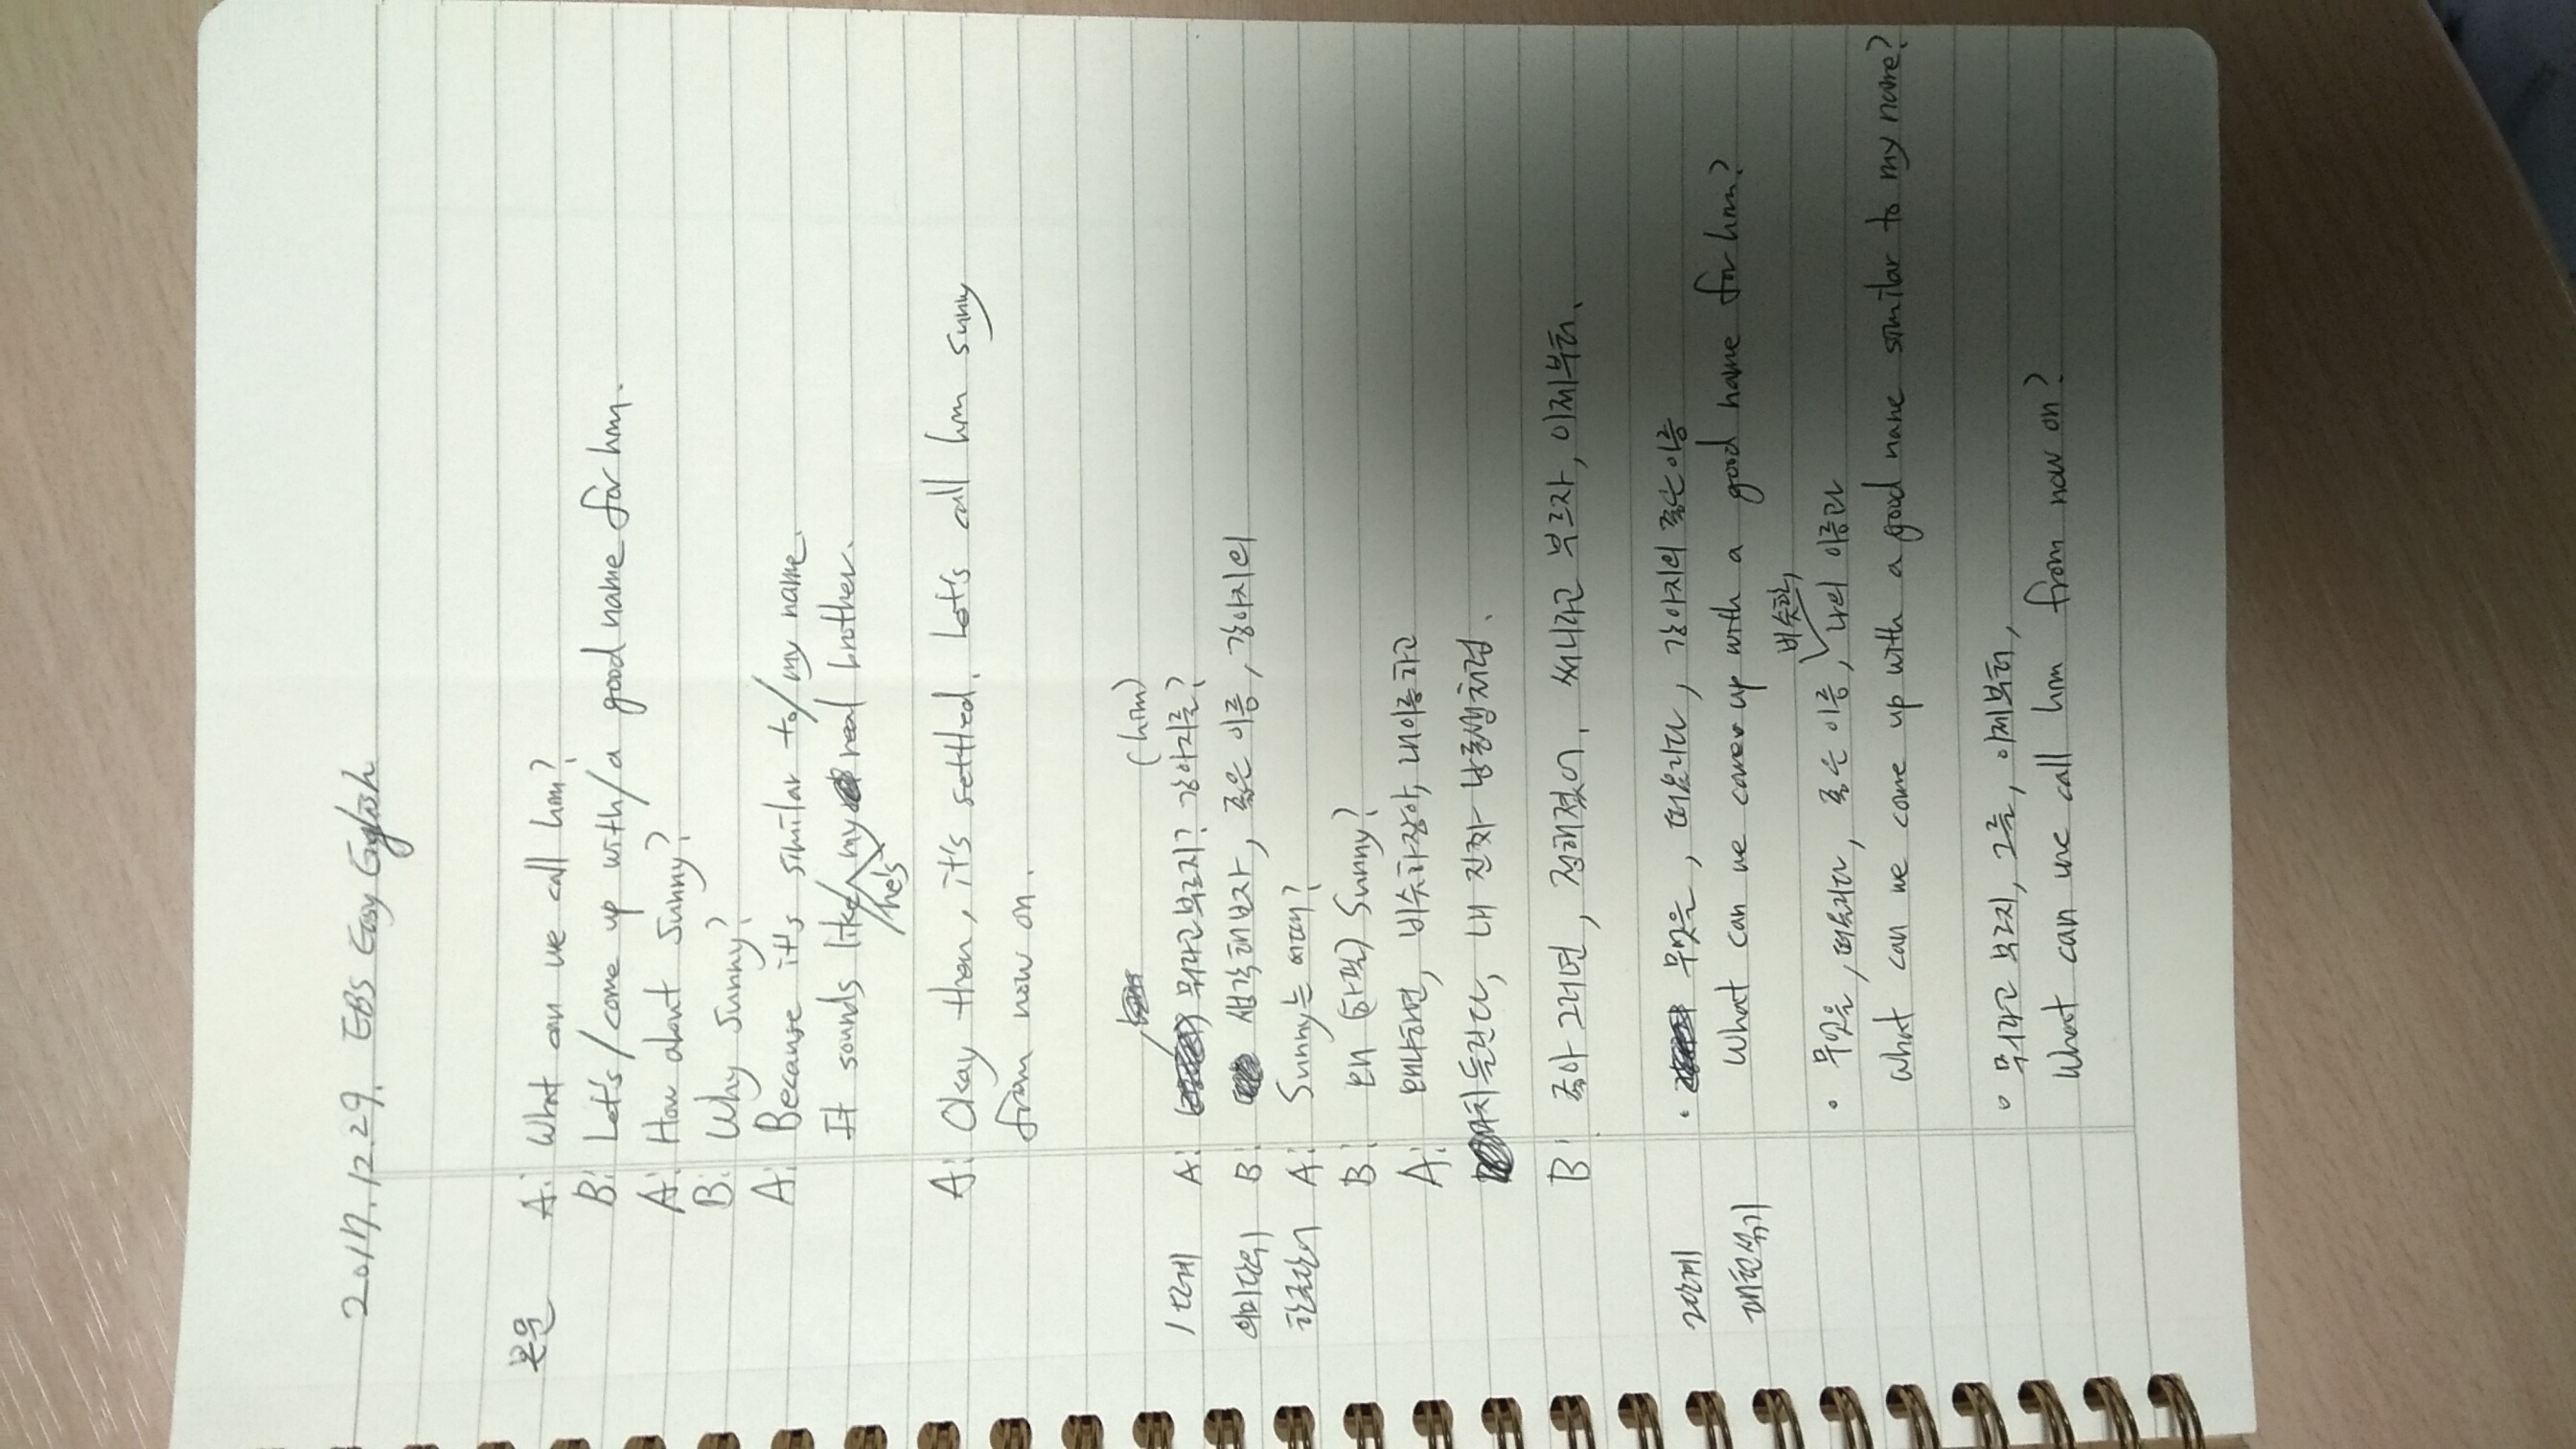 2017.12.29. EBS Easy English
본문 A: What can we call him?
B: Let's / come up with / a good name for him.
A: How about Sunny?
B: Why Sunny?
A: Because it's similar to / my name.
It sounds like / he's my real brother.
A: Okay then, it's settled. Let's call him sunny
from now on.
(him)
1단계 A: 뭐라고 부르지? 강아지를?
의미단위 B: 생각해보자, 좋은 이름, 강아지의
한글단어 A: Sunny는 어때?
B: 왜 (하필) Sunny?
A: 왜냐하면, 비슷하잖아, 내이름하고
마치 들린다, 내 진짜 남동생처럼.
B: 좋아 그러면, 정해졌어. 써니라고 부르자, 이제부터.
2단계 · 무엇을, 떠올리다, 강아지의 좋은이름
패턴섞기 What can we come up with a good name for him?
비슷한,
· 무엇을, 떠올리다, 좋은 이름, 나의 이름과
What can we come up with a good name similar to my name?
· 뭐라고 부르지, 그를, 이제부터,
What can we call him from now on?